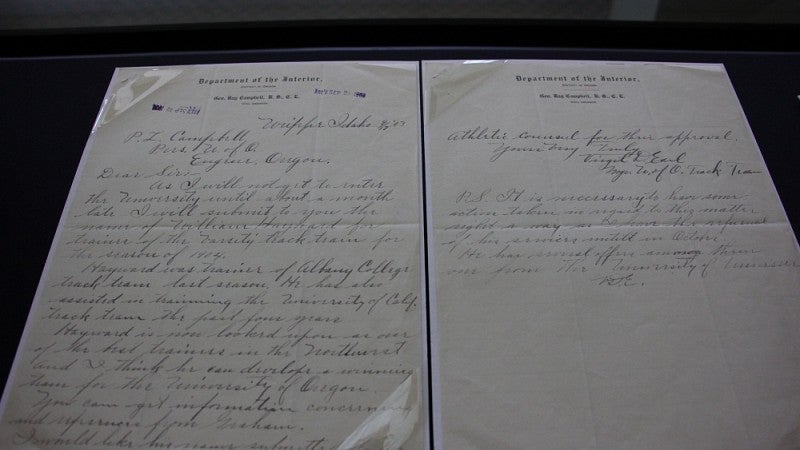 Department of the Interior,
Geo. Ray Campbell, B. S., C. E.
REC'D SEP 21 1903
Idaho 9/
P. L. Campbell,
Pres. U of O.
Eugene, Oregon.
Dear Sir:
As I will not get to enter
the University until about a month
late I will submit to you the
name of William Hayward for
trainer of the Varsity track team for
the season of 1904.
Hayward was trainer of Albany College
track team last season. He has also
assisted in trainning the University of Calif.
track team the past four years
Hayward is now looked upon as one
of the best trainers in the Northwest
and I think he can develope a winning
team for the University of Oregon.
You can get information concerning
and references from Graham.
I would like his name submitted
Department of the Interior,
Geo. Ray Campbell, B. S., C. E.
Athletic counsel for their approval.
Yours very Truly
Virgil D Earl
Mgr. U. of O. Track Team
P.S. It is necessary to have some
action taken in regard to this matter
right a way as we have the refusal
of his services untill in October
He has several offers among them
one from the University of
V.D.E.